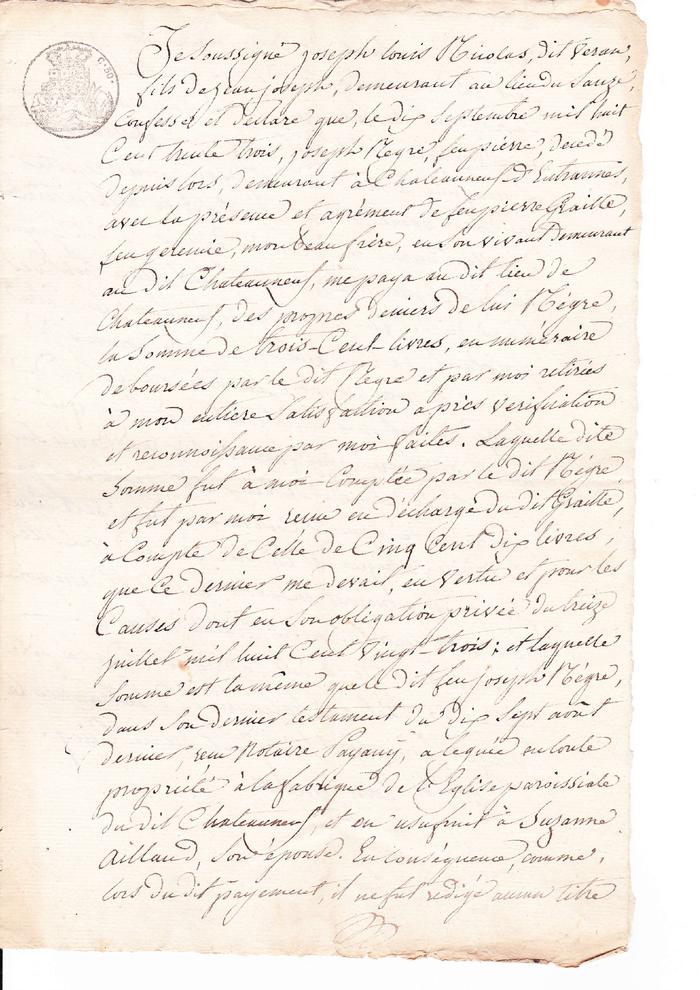 C. 50.
Je Soussigné Joseph Louis Nicolas, dit Veran,
fils de Jean Joseph, demeurant au lieu du Sauze,
Confesse et declare que, le dix Septembre mil huit
Cent trente trois, Joseph Negre, feu pierre, decedé
depuis lors, demeurant à Chateauneuf d'Entraunes,
avec la présence et agrément de feu pierre Graille,
feu geremie, mon beau frère, en Son vivant demeurant
au dit Chateauneuf, me paya au dit lieu de
Chateauneuf, des propres deniers de lui Négre,
la Somme de trois-Cent livres, en numéraire
deboursées par le dit Negre et par moi retirées
à mon entiere Satisfaction après verification
et reconnoissance par moi faites. Laquelle dite
Somme fut à moi Comptée par le dit Négre,
et fut par moi reçue en décharge du dit Graille,
à Compte de Celle de Cinq Cent dix livres,
que Ce dernier me devait, en Vertu et pour les
Causes dont en Son obligation privée du treize
juillet mil huit Cent Vingt-trois; et laquelle
Somme est la même que le dit feu Joseph Négre,
dans Son dernier testament du dix Sept août
dernier, reçu Notaire Payany, a leguée en toute
propriété à la fabrique de l'Eglise paroissiale
du dit Chateauneuf, et en usufruit à Suzanne
Aillaud, Son épouse. En Conséquence, Comme,
lors du dit payement, il ne fut rédigé aucun titre